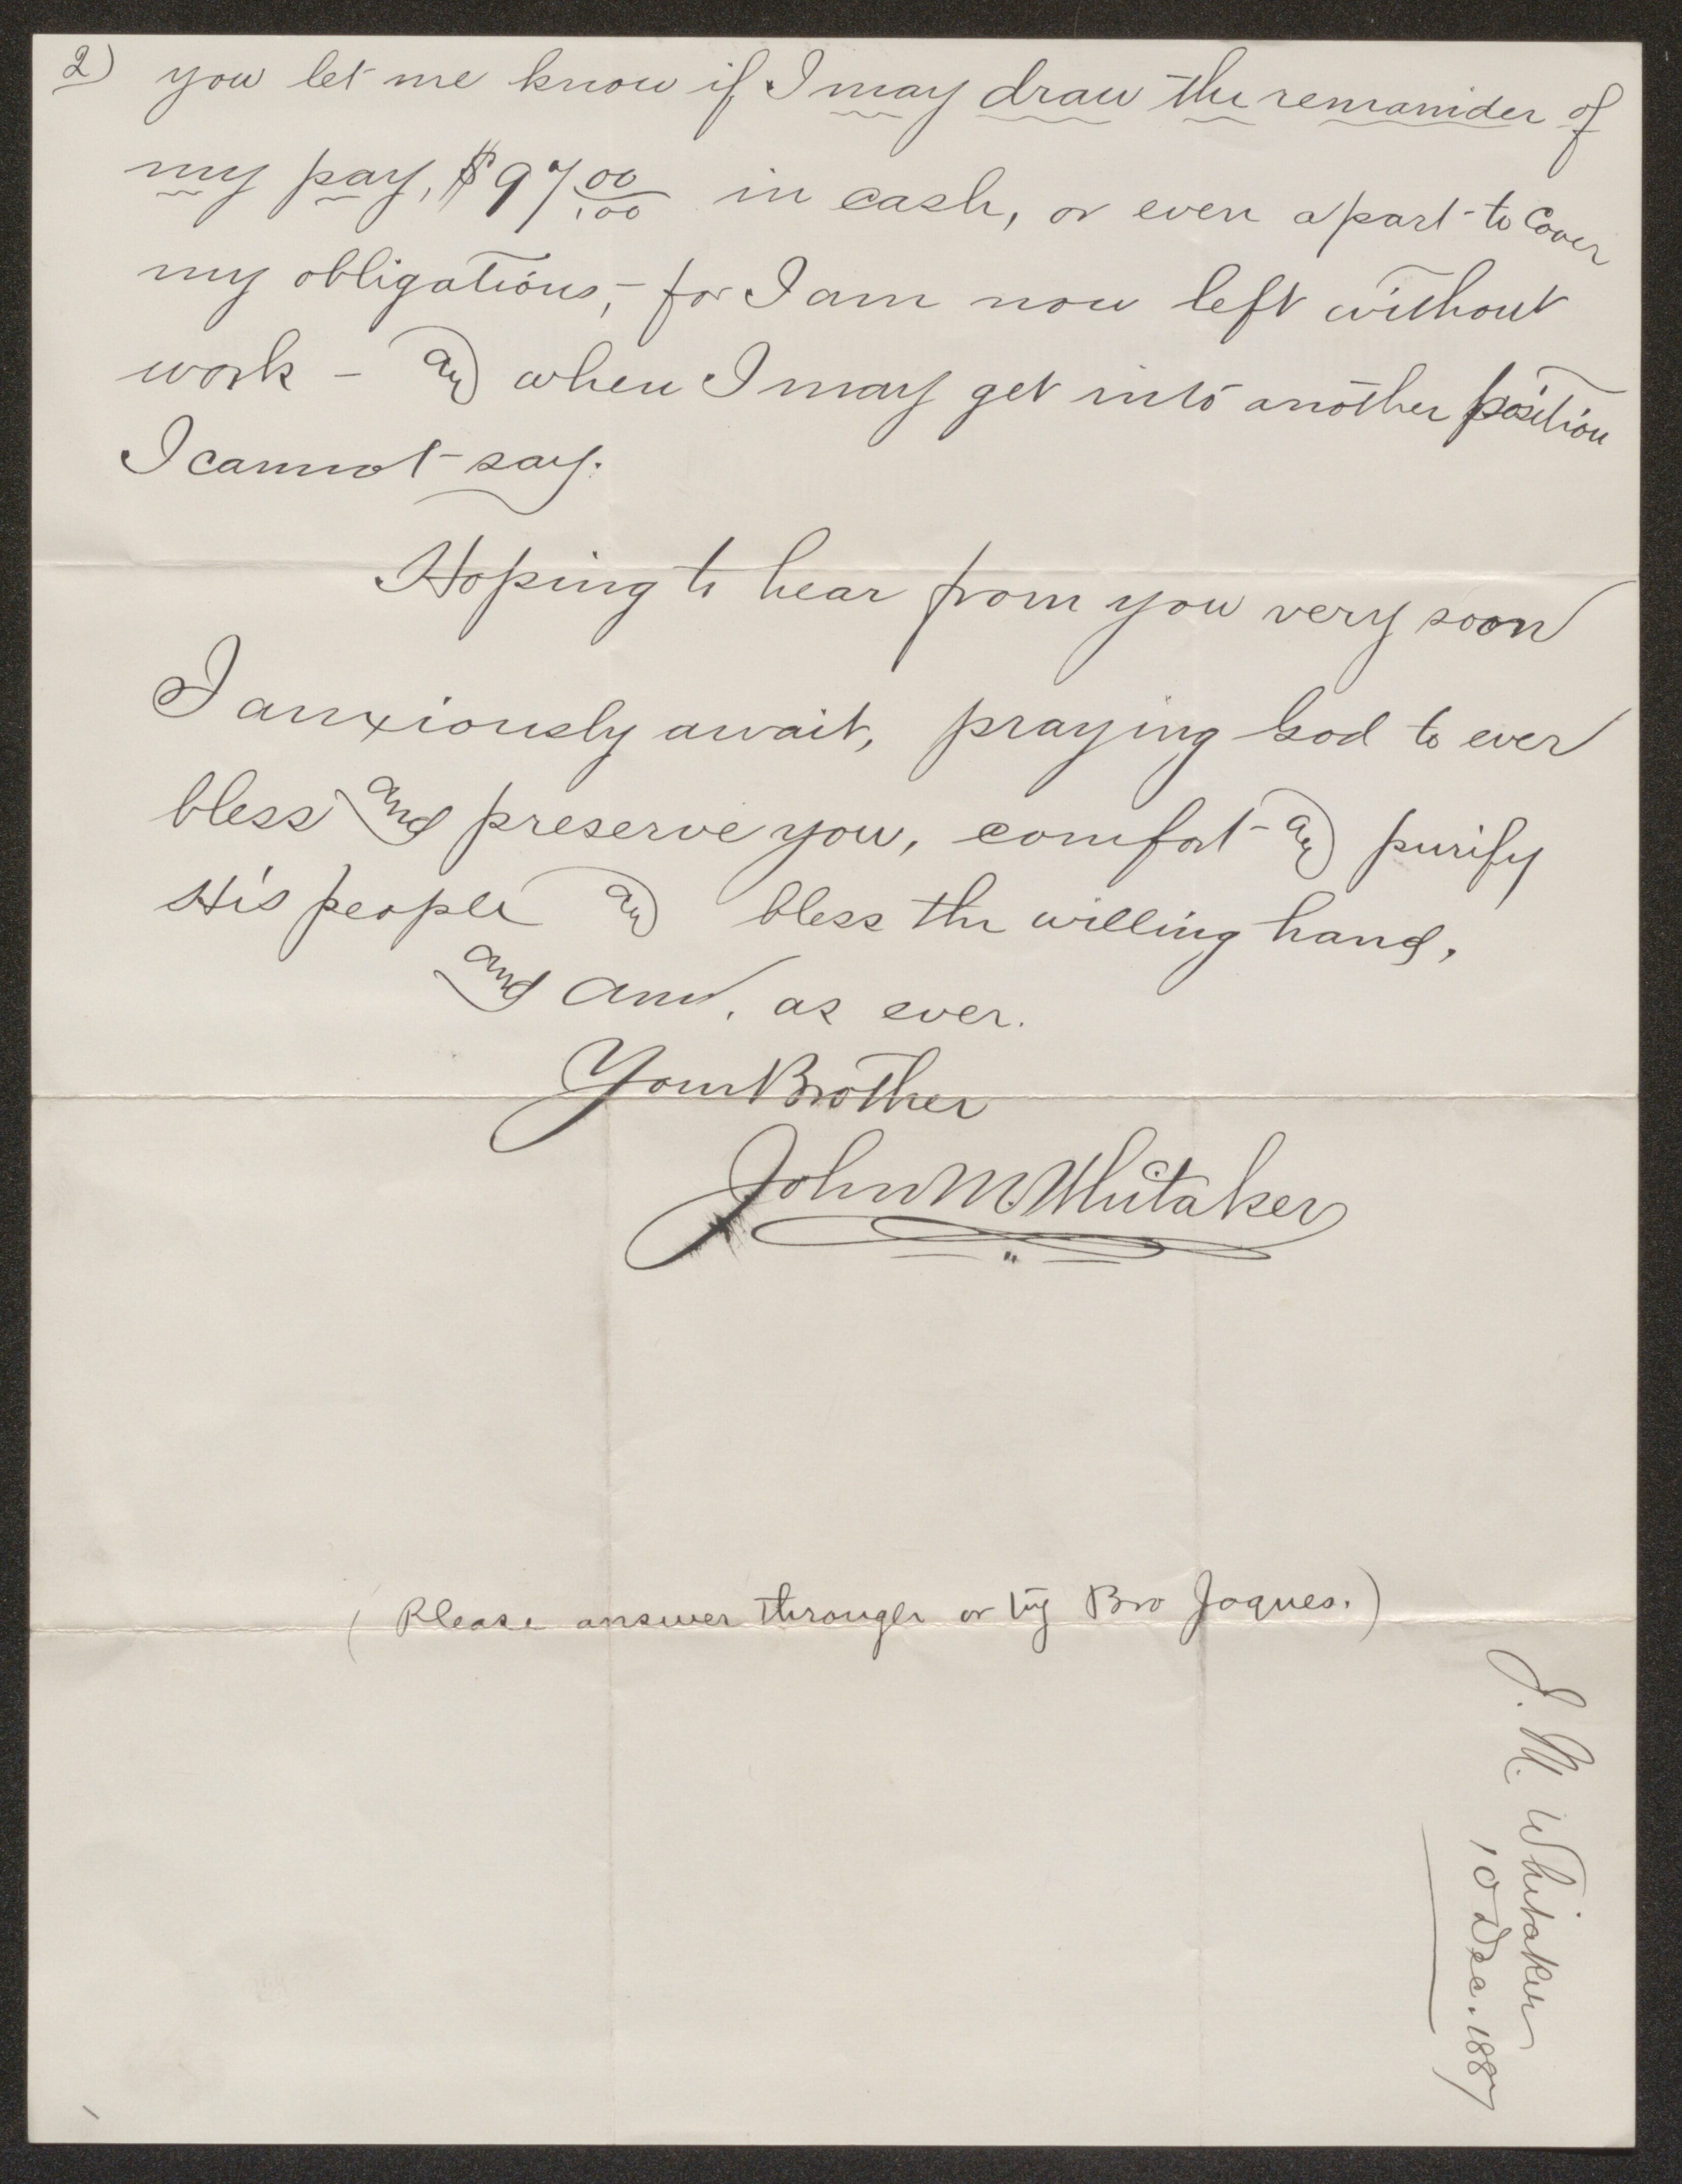 2) you let me know if I may draw the remainder of
my pay, $97 00/100 in cash, or even a part to cover
my obligations, - for I am now left without
work - and when I may get into another position
I cannot say.
Hoping to hear from you very soon
I anxiously await, praying God to ever
bless and preserve you, comfort and purify
His people and bless the willing hand,
and am, as ever.
Your Brother
John M. Whitaker
(Please answer through or by Bro Jaques.)
J. M. Whitaker
10 Dec. 1887